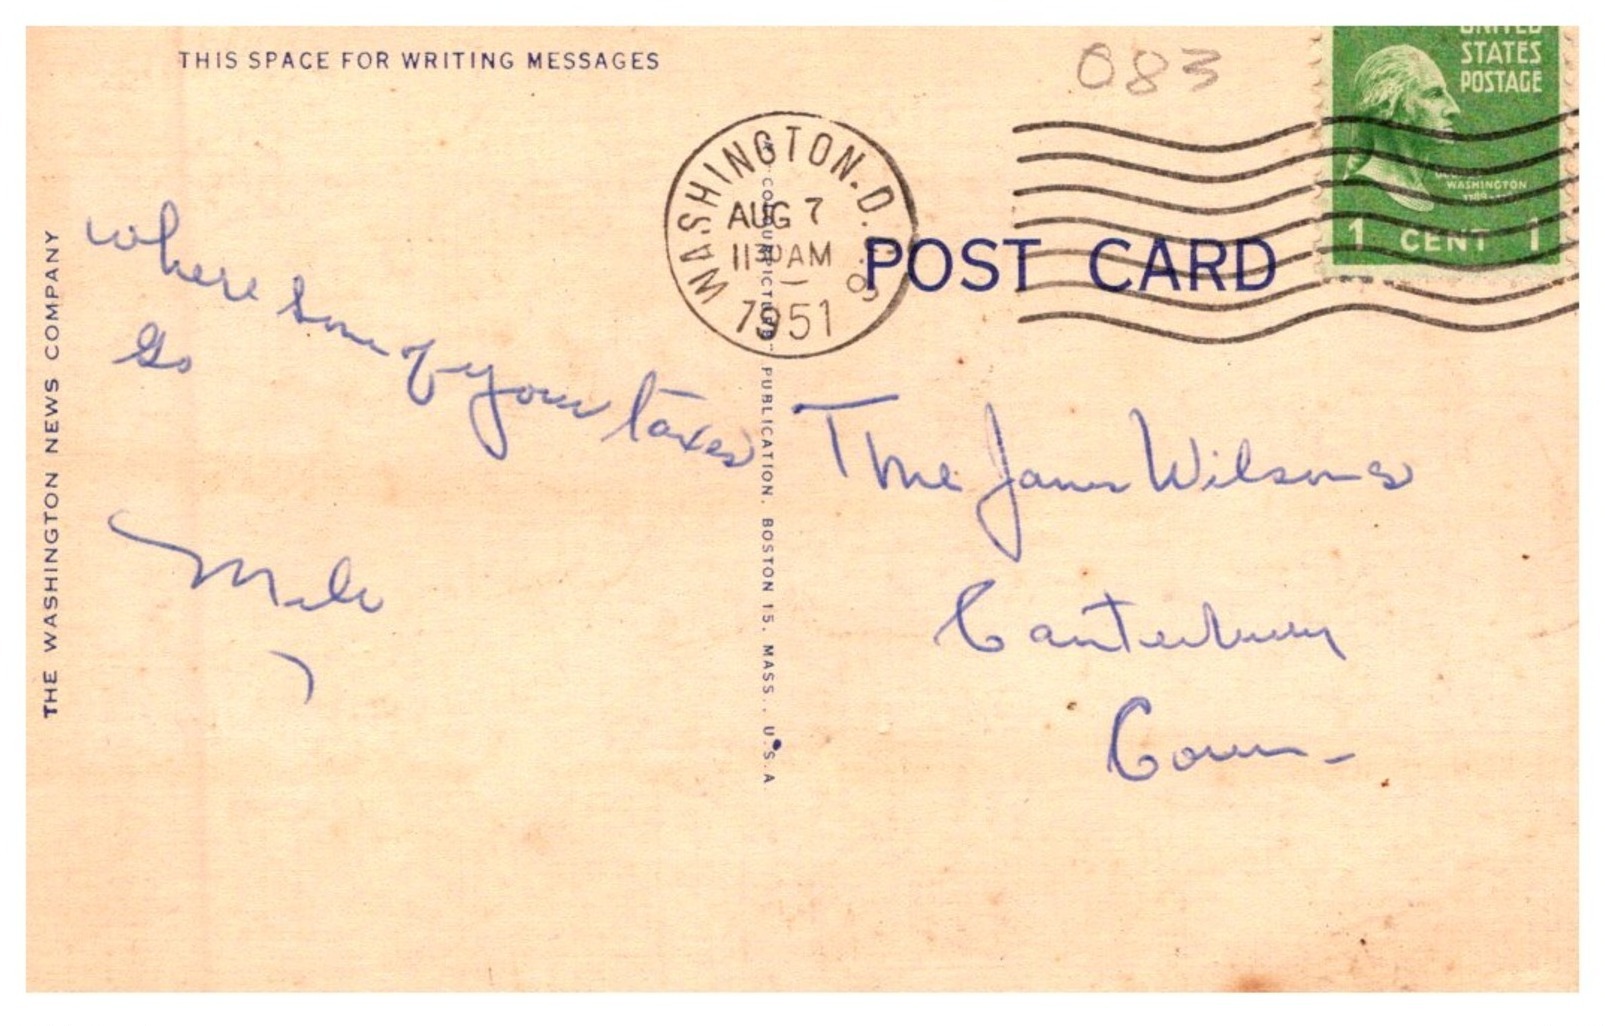 THIS SPACE FOR WRITING MESSAGES
083
UNITED
STATES
POSTAGE
WASHINGTON
1 CENT 1
WASHINGTON. D.C.
AUG 7
11 30 AM
1951
POST CARD
THE WASHINGTON NEWS COMPANY
PUBLICATION, BOSTON 15, MASS., U.S.A
where some of your taxes
go
The James Wilsons
Canterbury
Conn-